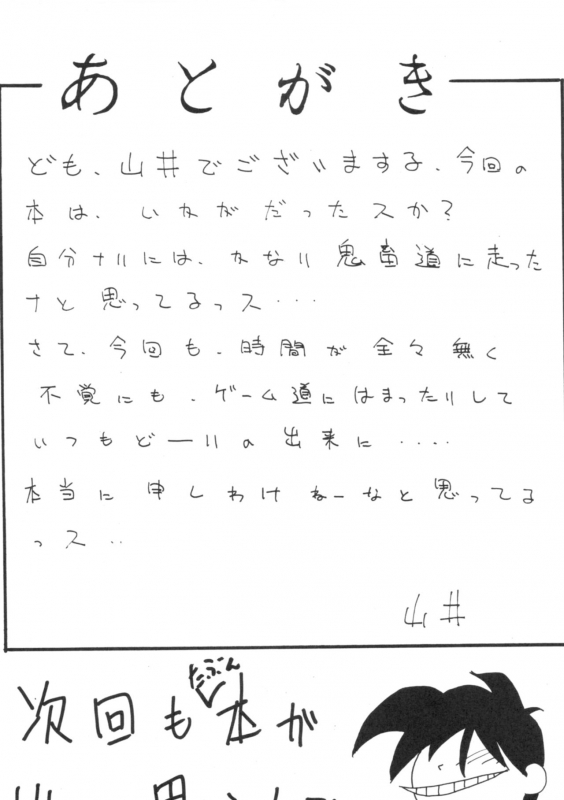 あとがき
ども、山井でございまする、今回の
本は、いかがだったスか?
自分ナリには、かなり鬼畜道に走った
ナと思ってるっス・・・
さて、今回も、時間が全々無く
不覚にも、ゲーム道にはまったりして
いつもどーりの出来に・・・・
本当に申しわけねーなと思ってる
っス・・
山井
たぶん
次回も本が